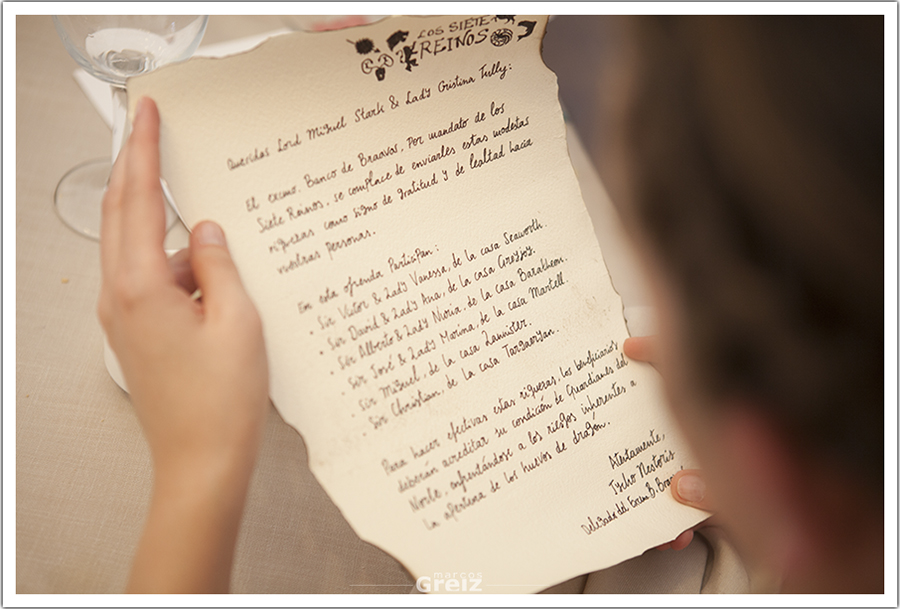 LOS SIETE
REINOS
Queridos Lord Miguel Stark & Lady Cristina Tully:
El excmo. Banco de Braavos, por mandato de los
Siete Reinos, se complace de enviarles estas modestas
riquezas como signo de gratitud y de lealtad hacia
vuestras personas.
En esta ofrenda participan:
• Sir Víctor & Lady Vanessa, de la casa Seaworth.
• Sir David & Lady Ana, de la casa Greyjoy.
• Sir Alberto & Lady Nuria, de la casa Baratheon.
• Sir José & Lady Marina, de la casa Martell.
• Sir Miguel, de la casa Lannister.
• Sir Christian, de la casa Targaryan.
Para hacer efectivas estas riquezas, los beneficiarios
deberán acreditar su condición de Guardianes del
Norte, enfrentándose a los riesgos inherentes a
la apertura de los huevos de dragón.
Atentamente,
Tycho Nestoris
Delegado del Excmo B.
marcos
Greiz